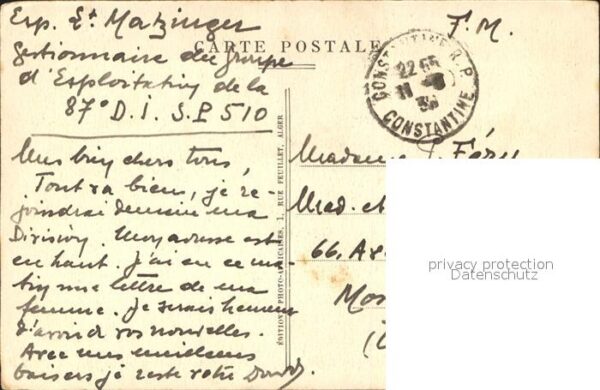 Exp. Lt Matzinger
Gestionnaire du groupe
d'Exploitation de la
87° D.I. S.P. 510
CARTE POSTALE
F.M.
CONSTANTINE R.P.
22 55
CONSTANTINE
Mes bien chers tous,
Tout va bien, je re-
joindrai demain ma
Division. Mon adresse est
en haut. J'ai eu ce ma-
tin une lettre de ma
femme. Je serais heureux
d'avoir de vos nouvelles.
Avec mes meilleurs
baisers je reste votre
ÉDITIONS PHOTO-AFRICAINES, 1, RUE FEUILLET, ALGER
Madame
Mad. et
66, A
Mo
privacy protection
Datenschutz